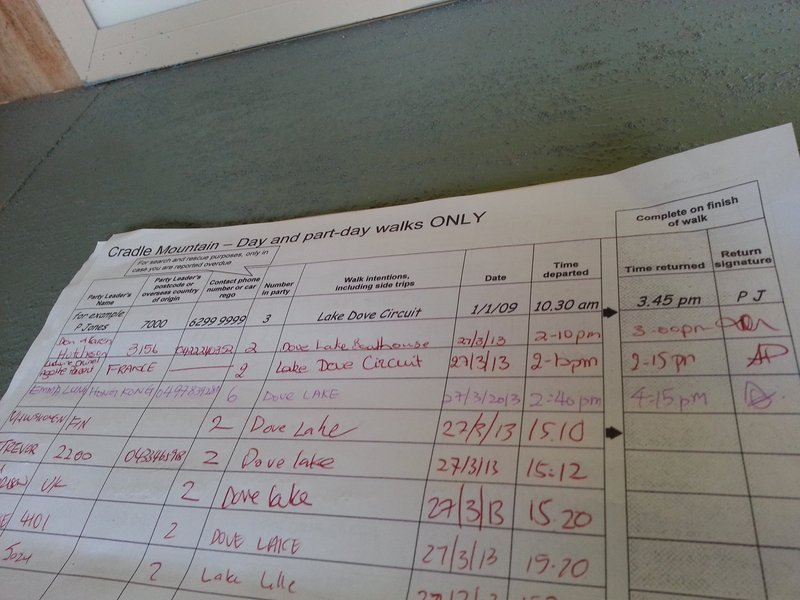 Cradle Mountain – Day and part-day walks ONLY
Complete on finish of walk
For search and rescue purposes, only in case you are reported overdue
Party Leader's Name
Party Leader's postcode or overseas country of origin
Contact phone number or car rego
Number in party
Walk intentions, including side trips
Date
Time departed
Time returned
Return signature
for example P Jones 7000 6299 9999 3 Lake Dove Circuit 1/1/09 10.30 am 3.45 pm P J
Hutcheson 3156 2 Dove Lake Boathouse 27/3/13 2-10pm 3-00pm
FRANCE 2 Lake Dove Circuit 27/3/13 2-15pm
EMMA LUM HONG KONG 6 DOVE LAKE 27/3/2013 2:40pm 4:15pm
FIN 2 Dove Lake 27/3/13 15.10
TREVOR 2200 2 Dove lake 27/3/13 15:12
UK 2 Dove lake 27/3/13 15.20
4101 2 DOVE LAKE 27/3/13
2 Lake Lille